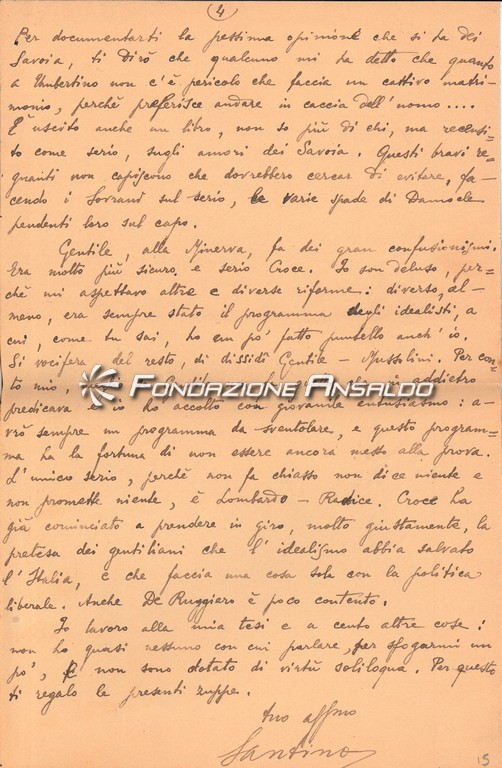 4
Per documentarti la pessima opinione che si ha dei
Savoia, ti dirò che qualcuno mi ha detto che quanto
a Umbertino non c'è pericolo che faccia un cattivo matri-
monio, perchè preferisce andare in caccia dell'uomo....
È uscito anche un libro, non so più di chi, ma recensi-
to come serio, sugli amori dei Savoia. Questi bravi re-
gnanti non capiscono che dovrebbero cercar di evitare, fa-
cendo i Sovrani sul serio, le varie spade di Damocle
pendenti loro sul capo.
Gentile, alla Minerva, fa dei gran confusionismi.
Era molto più sicuro e serio Croce. Io son deluso, per-
chè mi aspettavo altre e diverse riforme: diverso, al-
meno, era sempre stato il programma degli idealisti, a
cui, come tu sai, ho un po' fatto puntello anch'io.
Si vocifera del resto, di dissidî Gentile - Mussolini. Per con-
to mio,
FONDAZIONE ANSALDO
indietro
predicava e io ho accolto con giovanile entusiasmo: a-
vrò sempre un programma da sventolare, e questo program-
ma ha la fortuna di non essere ancora messo alla prova.
L'unico serio, perchè non fa chiasso non dice niente e
non promette niente, è Lombardo - Radice. Croce ha
già cominciato a prendere in giro, molto giustamente, la
pretesa dei gentiliani che l'idealismo abbia salvato
l'Italia, e che faccia una cosa sola con la politica
liberale. Anche De Ruggiero è poco contento.
Io lavoro alla mia tesi e a cento altre cose:
non ho quasi nessuno con cui parlare, per sfogarmi un
po', e non sono dotato di virtù soliloqua. Per questo
ti regalo le presenti zuppe.
tuo affmo
Santino
15